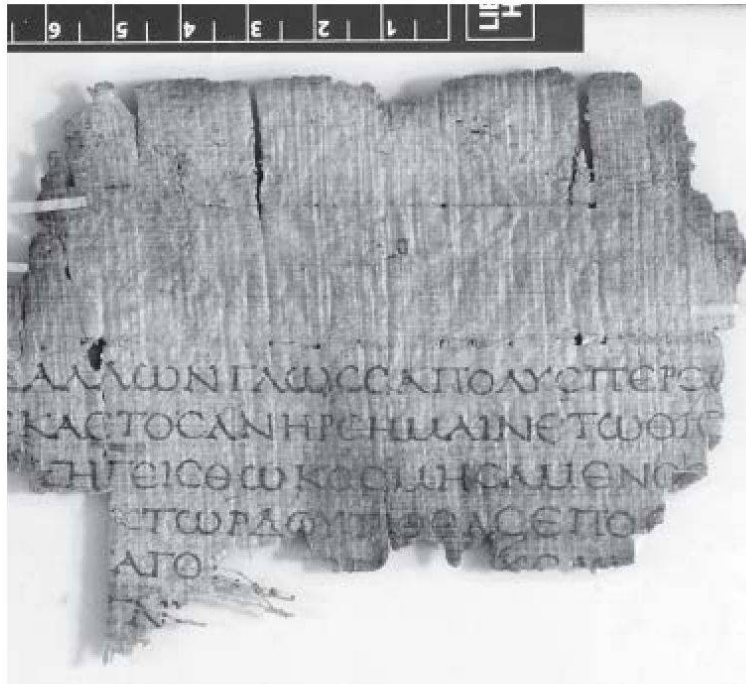 6 5 4 3 2 1
ΑΛΛΩΝΓΛΩϹϹΑΠΟΛΥϹΠΕΡΕΩ
ΕΚΑϹΤΟϹΑΝΗΡϹΗΜΑΙΝΕΤΩΟΙϹ
ΞΗΓΕΙϹΘΩΚΟϹΜΗϹΑΜΕΝΟϹ
ΚΤΩΡΔΟΥΤΙΘΕΑϹΕΠΟ
ΑΓΟ